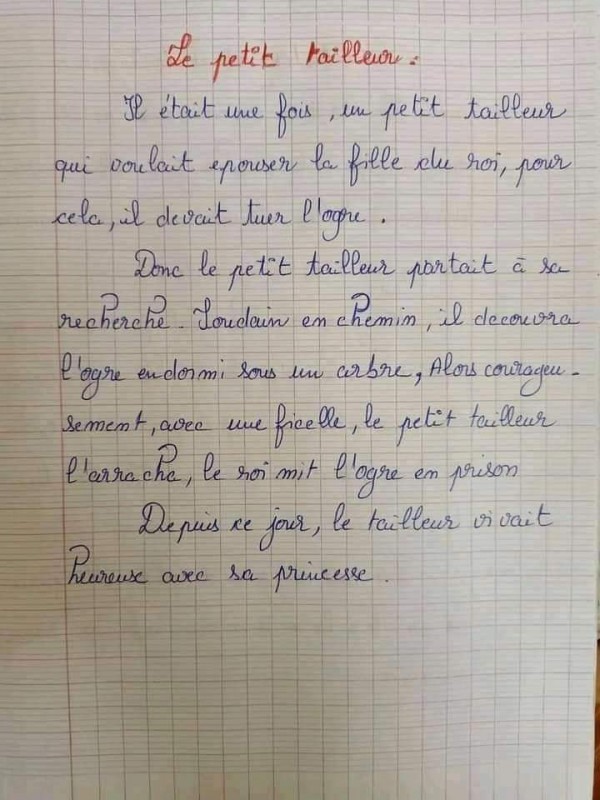 Le petit tailleur :
Il était une fois, un petit tailleur
qui voulait epouser la fille du roi, pour
cela, il devait tuer l'ogre.
Donc le petit tailleur partait à sa
recherche. Soudain en chemin, il decouvra
l'ogre endormi sous un arbre, Alors courageu-
sement, avec une ficelle, le petit tailleur
l'arrache, le roi mit l'ogre en prison
Depuis ce jour, le tailleur vivait
heureux avec sa princesse.